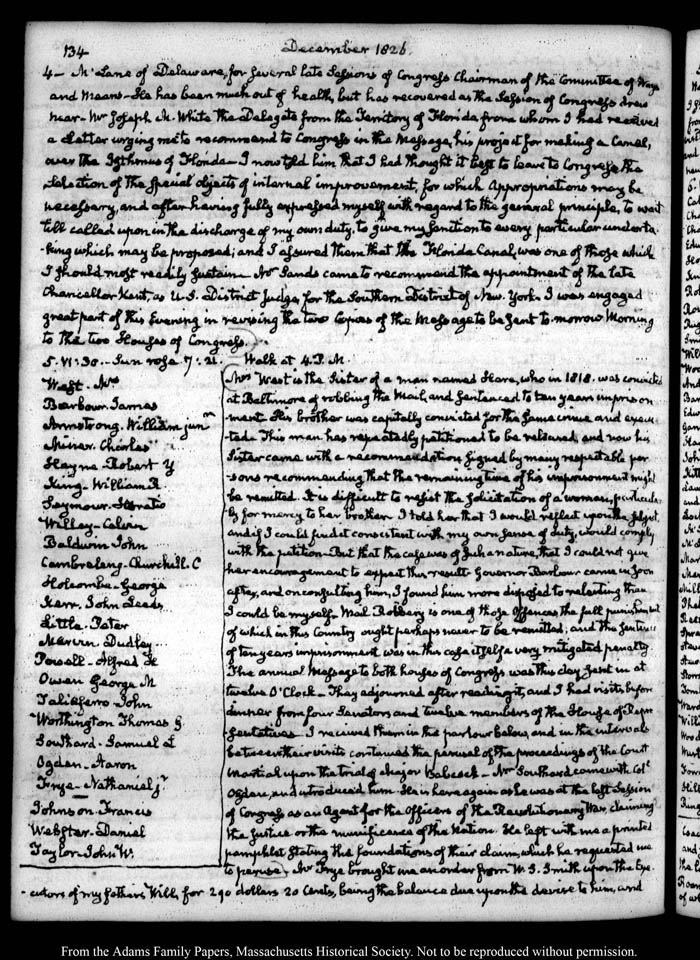 134
December 1826.
4— Mc Lane of Delaware, for several late Sessions of Congress Chairman of the Committee of Ways
and Means— He has been much out of health, but has recovered as the Session of Congress drew
near— Mr Joseph M. White the Delegate from the Territory of Florida from whom I had received
a Letter urging me to recommend to Congress in the Message, his project for making a Canal,
over the Isthmus of Florida— I now told him that I had thought it best to leave to Congress the
Selection of the special objects of internal improvement, for which Appropriations may be
necessary, and after having fully expressed myself with regard to the general principle, to wait
till called upon in the discharge of my own duty, to give my sanction to every particular underta-
-king which may be proposed; and I assured them that the Florida Canal, was one of those which
I should most readily sustain— Mr Sands came to recommend the appointment of the late
Chancellor Kent, as U.S. District Judge, for the Southern District of New-York. I was engaged
great part of this Evening in revising the two Copies of the Message to be sent to-morrow Morning
to the two Houses of Congress.
5. VI:30. Sun rose 7:21. Walk at 4. P.M.
West. Mrs
Barbour James
Armstrong. William junr
Miner. Charles
Hayne. Robert Y
King. William R.
Seymour. Horatio
Willey. Calvin
Baldwin John
Cambreleng. Churchill. C
Holcombe. George
Kerr. John Leeds
Little. Peter
Marvin Dudley
Powell. Alfred H
Owen George M
Taliaferro John
Worthington Thomas G.
Southard. Samuel L
Ogden. Aaron
Frye. Nathaniel jr
Johnson. Francis
Webster. Daniel
Taylor. John W.
Mrs West is the Sister of a man named Hare, who in 1818. was convicted
at Baltimore of robbing the Mail, and sentenced to ten years imprison-
ment. His brother was capitally convicted for the same crime and execu-
ted. This man has repeatedly petitioned to be released, and now his
Sister came with a recommendation signed by many respectable per-
sons recommending that the remaining time of his imprisonment might
be remitted. It is difficult to resist the solicitation of a woman, particular-
ly for mercy to her brother. I told her that I would reflect upon the subject
and if I could find it consistent with my own sense of duty, would comply
with the petition— But that the case was of such a nature, that I could not give
her encouragement to expect this result. Governor Barbour came in soon
after, and on consulting him, I found him more disposed to relenting than
I could be myself. Mail Robbery is one of those Offences the full punishment
of which in this Country ought perhaps never to be remitted; and the sentence
of ten years imprisonment was in this case itself a very mitigated penalty.
The annual Message to both houses of Congress was this day sent in at
twelve O'Clock— They adjourned after reading it, and I had visits, before
dinner from four Senators and twelve members of the House of Repre-
sentatives. I received them in the parlour below, and in the intervals
between their visits continued the perusal of the proceedings of the Court
Martial upon the trial of Major Babcock— Mr Southard came with Col.
Ogden, and introduced him. He is here again as he was at the last Session
of Congress as an Agent for the Officers of the Revolutionary War, claiming
the Justice or the munificence of the Nation. He left with me a printed
pamphlet stating the foundations of their claim, which he requested me
to peruse. Mr Frye brought me an order from W. S. Smith upon the Exe-
-cutors of my father's Will, for 290 dollars 20 Cents, being the balance due upon the devise to him, and
From the Adams Family Papers, Massachusetts Historical Society. Not to be reproduced without permission.